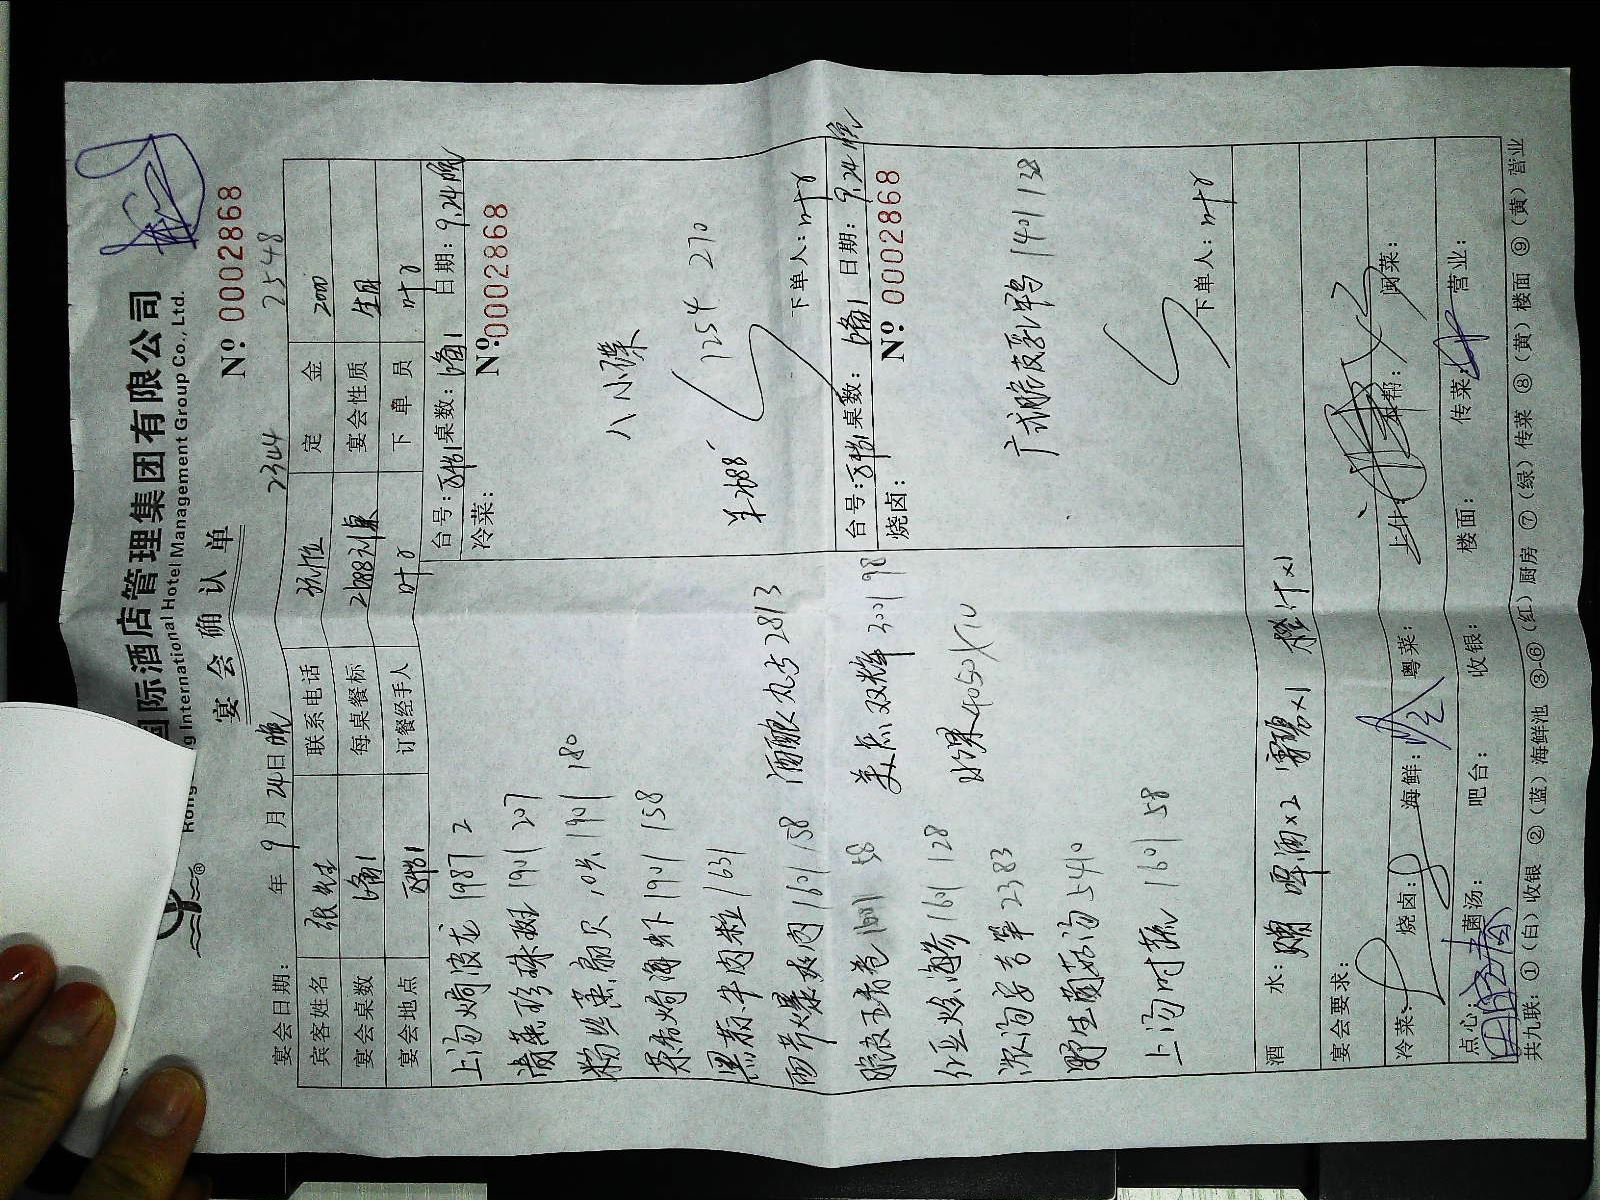 国际酒店管理集团有限公司
International Hotel Management Group Co., Ltd.
宴会确认单
Nº 0002868
宴会日期： 年 9 月 24 日 晚 2344 2548
宾客姓名 张先生 联系电话 定金 2000
宴会桌数 1备1 每桌餐标 2688 宴会性质 生日
宴会地点 订餐经手人 叶 下单员 叶
上汤焗波龙 1987 2
清蒸珍珠斑 1901 207
粉丝蒸扇贝 10只 1901 180
焗海虾 1901 158
黑椒牛肉粒 1631
西芹爆 肉 1601 158
脆皮 卷 1601 58
海参 1601 128
浓汤 2383
野生菌菇汤 1540
上汤时蔬 1601 58
酒酿丸子 2813
美点双辉 301 98
水果 4050 X10
台号： 桌数：1备1 日期：9.24晚
冷菜： Nº 0002868
八小碟
1254 270
半2688
下单人：叶
台号： 桌数：1备1 日期：9.24晚
烧卤： Nº 0002868
广式脆皮乳鸭 1401 138
下单人：叶
酒水： 啤酒x2 雪碧x1 橙汁x1
宴会要求：
冷菜： 烧卤： 海鲜： 粤菜： 上什： 本帮： 闽菜：
点心： 菌汤： 吧台： 收银： 楼面： 传菜： 营业：
共九联：①（白）收银 ②（蓝）海鲜池 ③-⑥（红）厨房 ⑦（绿）传菜 ⑧（黄）楼面 ⑨（黄）营业